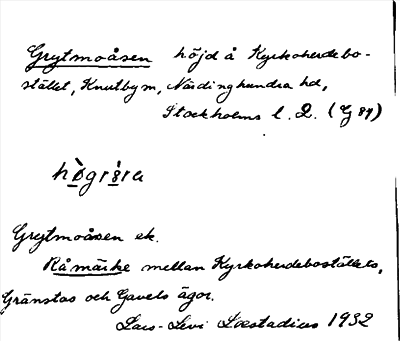 Grytmoåsen höjd å Kyrkoherdebo-
stället, Knutby sn, Närdinghundra hd,
Stockholms l. Q. (G 89)
högröra
Grytmoåsen ek.
Råmärke mellan Kyrkoherdeboställets,
Gränstas och Gavels ägor.
Lars-Levi Læstadius 1932